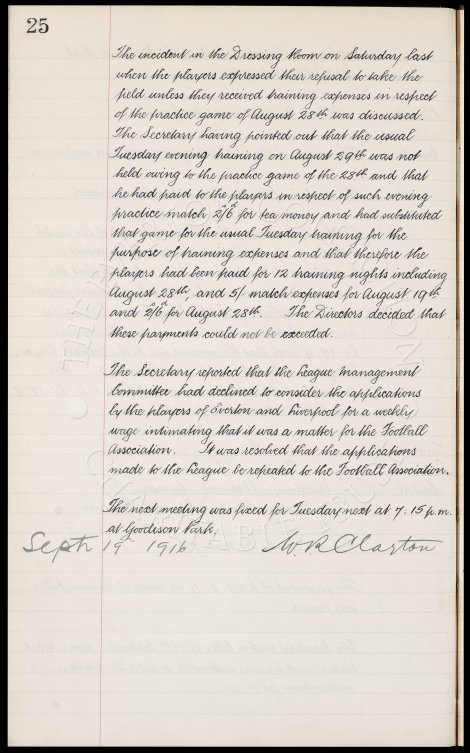 25
The incident in the Dressing Room on Saturday last
when the players expressed their refusal to take the
field unless they received training expenses in respect
of the practice game of August 28th was discussed.
The Secretary having pointed out that the usual
Tuesday evening training on August 29th was not
held owing to the practice game of the 28th and that
he had paid to the players in respect of such evening
practice match 2s/6d for tea money and had substituted
that game for the usual Tuesday training for the
purpose of training expenses and that therefore the
players had been paid for 12 training nights including
August 28th, and 5/ match expenses for August 19th
and 2s/6d for August 28th. The Directors decided that
these payments could not be exceeded.
The Secretary reported that the League Management
Committee had declined to consider the applications
by the players of Everton and Liverpool for a weekly
wage intimating that it was a matter for the Football
Association. It was resolved that the applications
made to the League be repeated to the Football Association.
The next meeting was fixed for Tuesday next at 7.15 p.m.
at Goodison Park.
Sept 19th 1916 W. R. Clayton